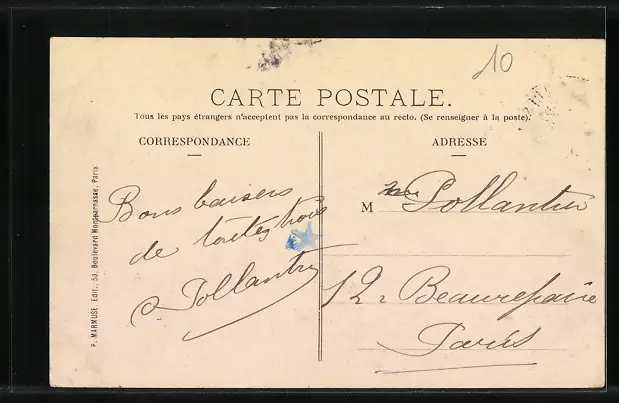 10
CARTE POSTALE.
Tous les pays étrangers n'acceptent pas la correspondance au recto. (Se renseigner à la poste).
CORRESPONDANCE
ADRESSE
P. MARMUSE, Edit., 53, Boulevard Montparnasse, Paris
Bons baisers
de toutes trois
Pollantru
M me Pollantru
12 r Beaurepaire
Paris